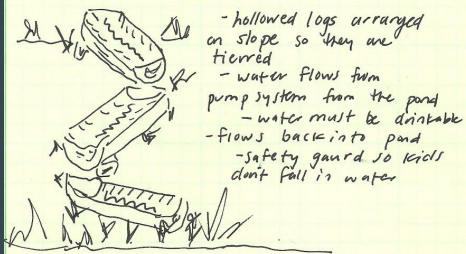 - hollowed logs arranged
on slope so they are
tierred
- water flows from
pump system from the pond
- water must be drinkable
- flows back into pond
- safety gaurd so kids
don't fall in water